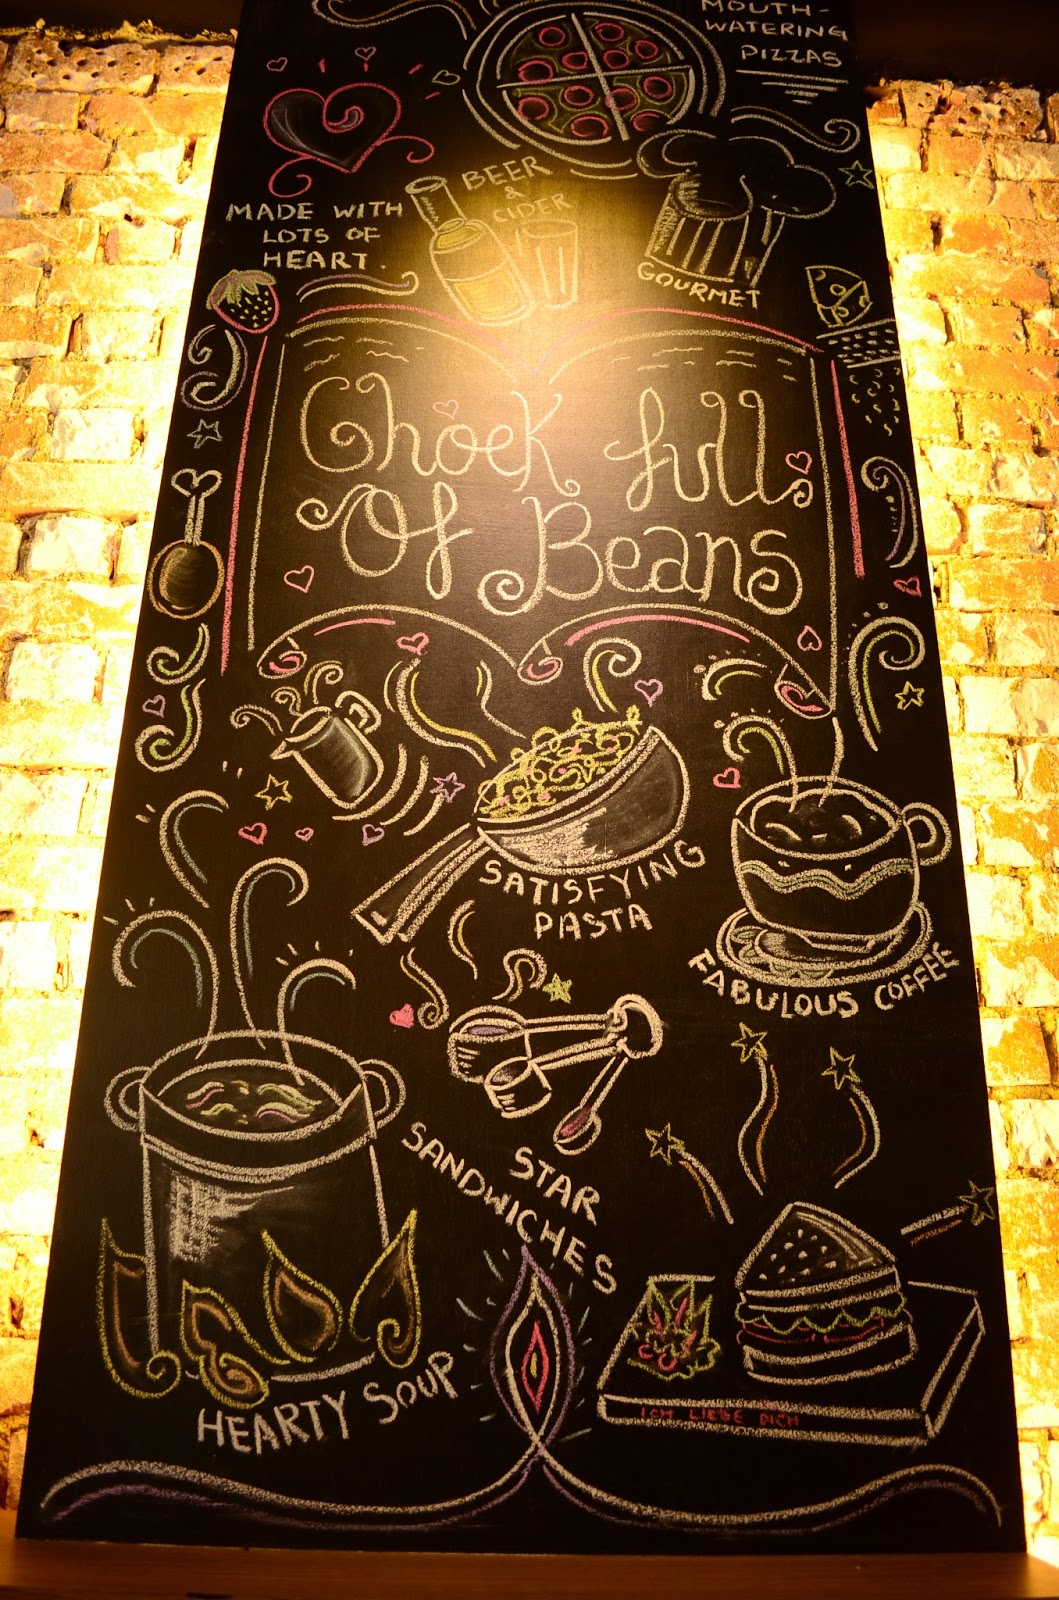 MOUTH-
WATERING
PIZZAS
BEER
&
CIDER
MADE WITH
LOTS OF
HEART.
GOURMET
Chock full
Of Beans
SATISFYING
PASTA
FABULOUS COFFEE
STAR
SANDWICHES
HEARTY SOUP
ICH LIEBE DICH